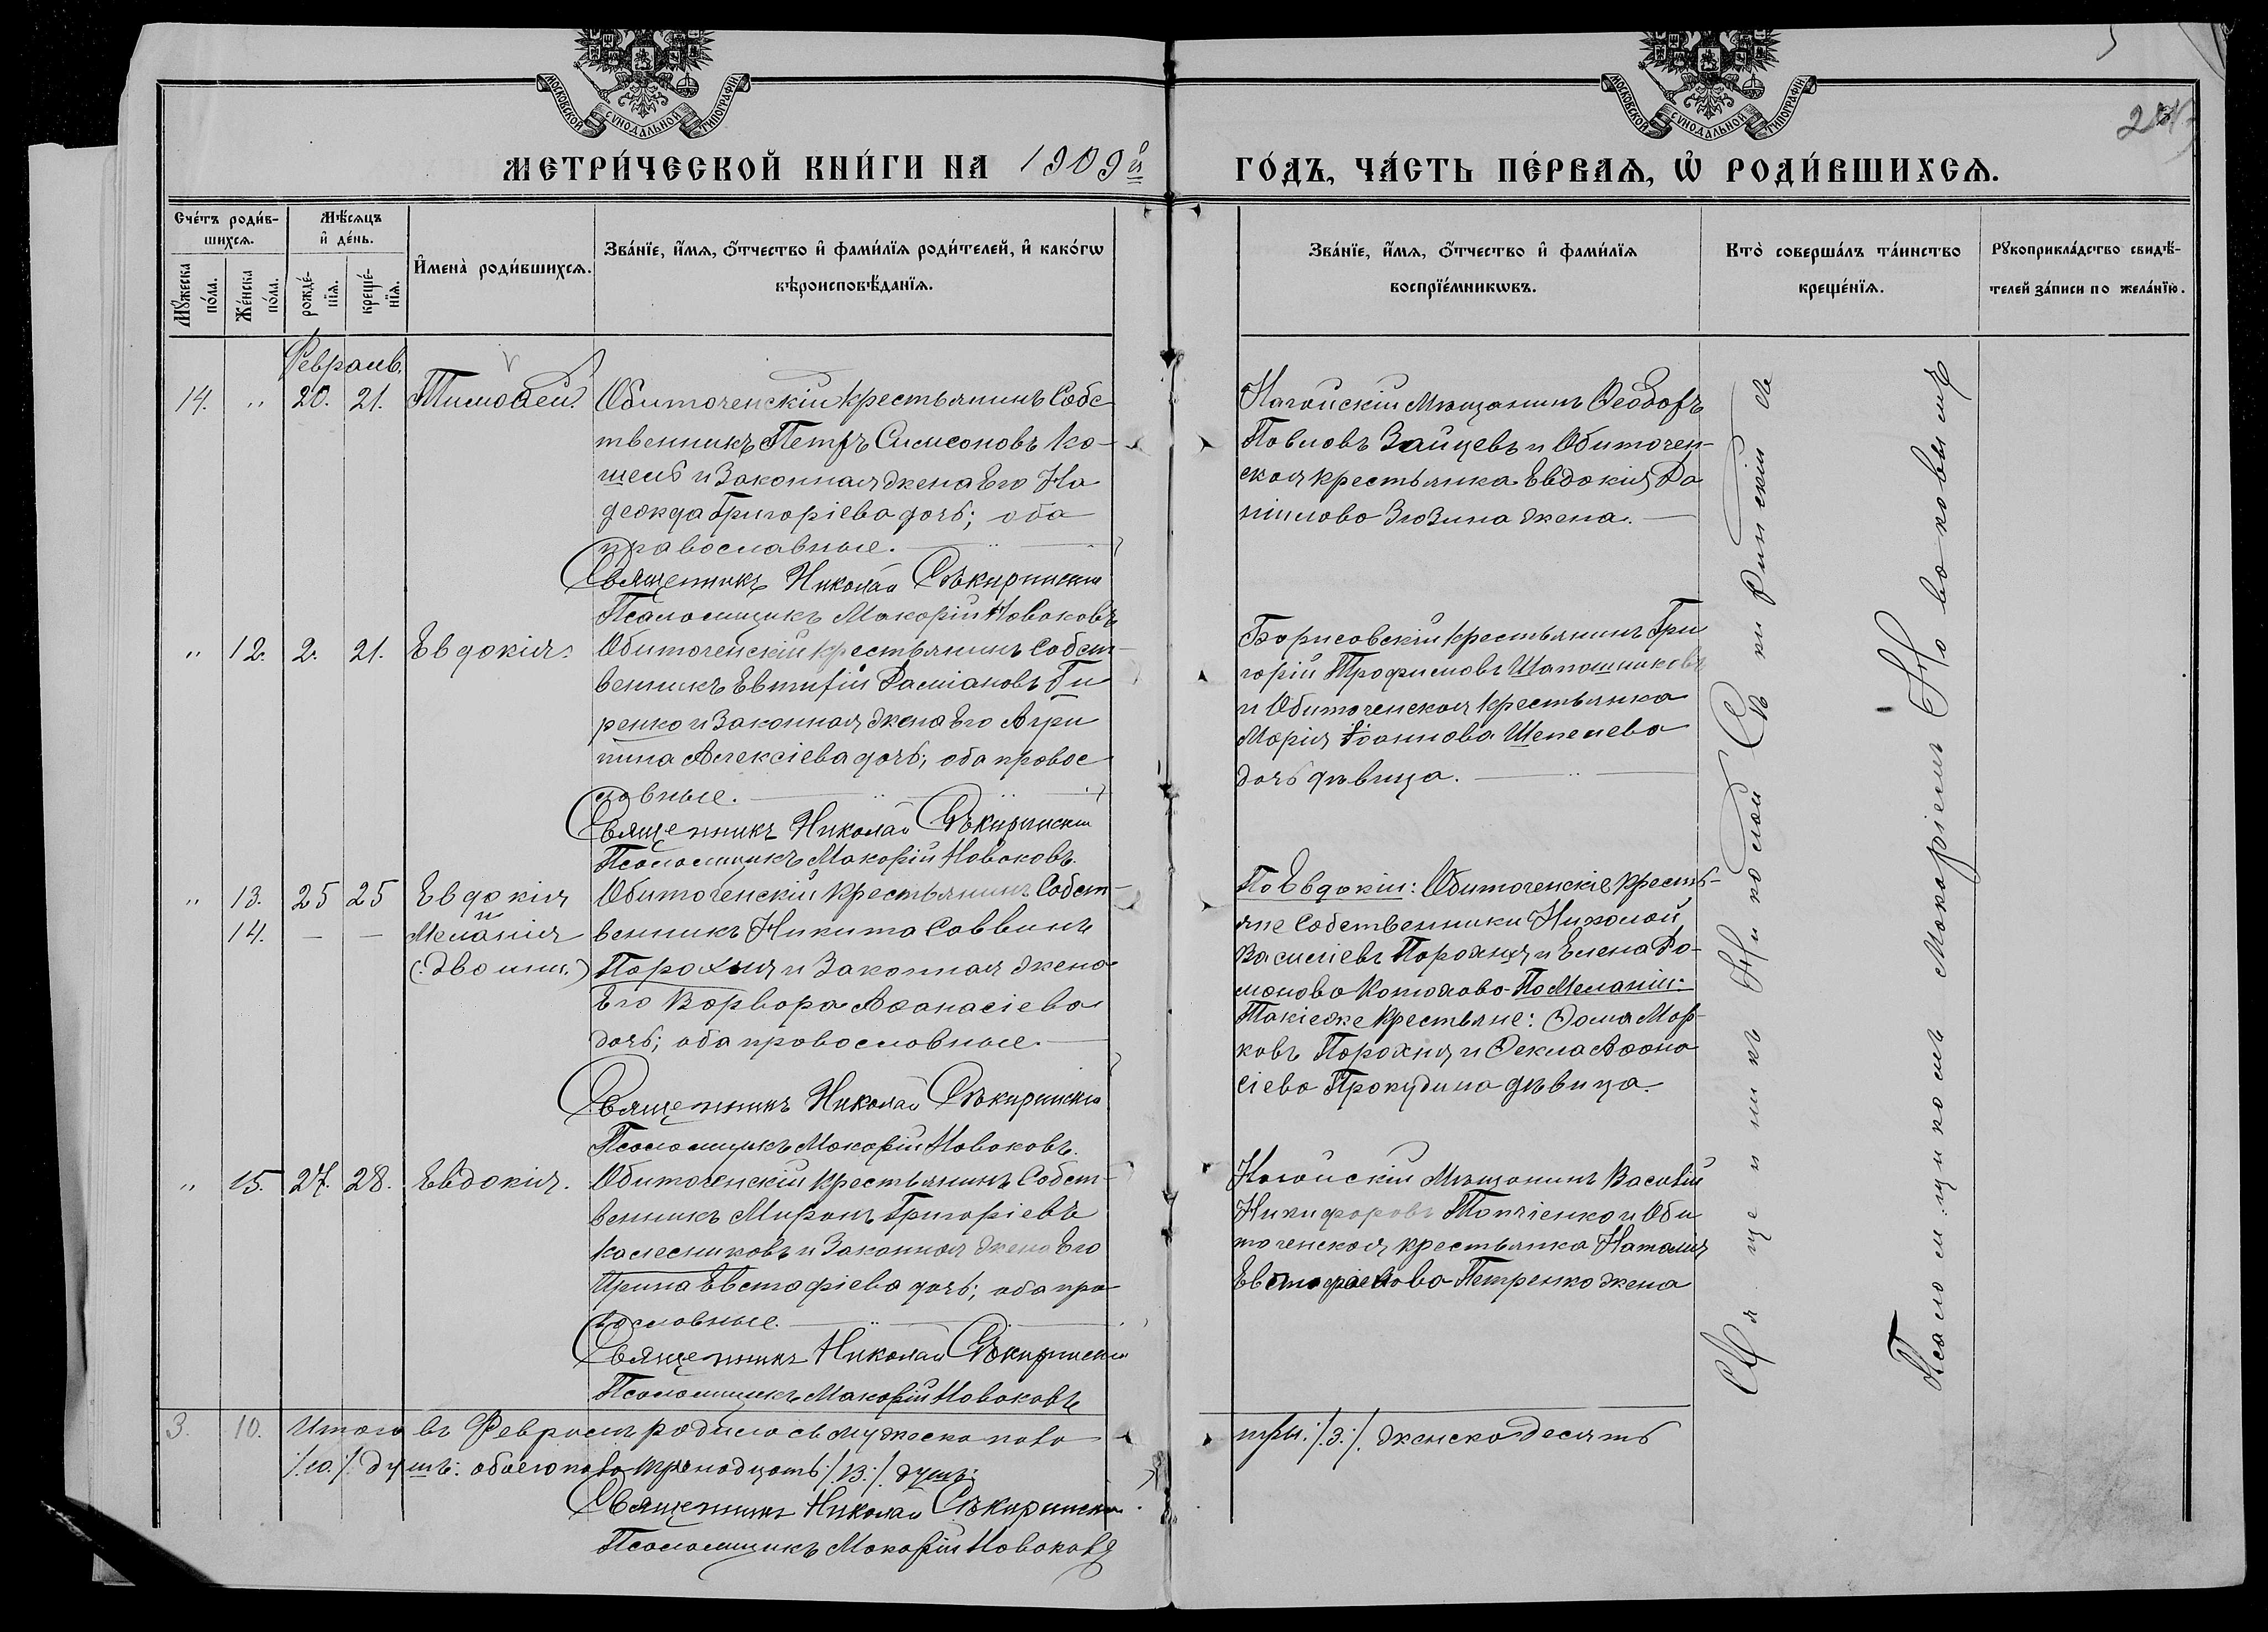 МОСКОВСКОЙ СѴНОДАЛЬНОЙ ТИПОГРАФІИ
МОСКОВСКОЙ СѴНОДАЛЬНОЙ ТИПОГРАФІИ
МЕТРИ́ЧЕСКОЙ КНИ́ГИ НА 1909й ГО́ДЪ, ЧА́СТЬ ПЕ́РВАѦ, Ѡ҆ РОДИ́ВШИХСѦ.
Сче́тъ роди́в-
шихсѧ.
Мꙋ́жеска
по́ла.
Же́нска
по́ла.
Мѣ́сѧцъ
и҆ де́нь.
рожде́-
нїѧ.
креще́-
нїѧ.
И҆мена̀ роди́вшихсѧ.
Зва́нїе, и҆́мѧ, ѻ҆́тчество и҆ фами́лїѧ роди́телей, и҆ како́гѡ
вѣроисповѣ́данїѧ.
Зва́нїе, и҆́мѧ, ѻ҆́тчество и҆ фами́лїѧ
воспрїе́мникѡвъ.
Кто̀ соверша́лъ та́инство
креще́нїѧ.
Рꙋкоприкла́дство свидѣ́-
телей за́писи по жела́нїю.
Февраль.
14. " 20. 21. Тимоѳей.
Обиточенскій крестьянинъ Собс
твенникъ Петръ Симеоновъ Ко-
шель и Законная жена Его На
дежда Григоріева дочь; оба
православные.
Священникъ Николай Сѣкиринскій
Псаломщикъ Макарій Новаковъ
Ногайскій Мѣщанинъ Ѳеодоръ
Павловъ Зайцевъ и Обиточен-
ская крестьянка Евдокія Да
нилова Зюзина жена.
" 12. 2. 21. Евдокія.
Обиточенскій крестьянинъ Собст-
венникъ Евтифій Даміановъ Ги
ренко и Законная жена Его Агри
пина Алексіева дочь; оба правос
лавные.
Священникъ Николай Сѣкиринскій
Псаломщикъ Макарій Новаковъ.
Борисовскій крестьянинъ Гри
горій Трофимовъ Шапошниковъ
и Обиточенская крестьянка
Марія Іоаннова Шепелева
дочь дѣвица.
" 13. 25 25 Евдокія
и
14. — — Меланія
(:двойни.)
Обиточенскій крестьянинъ Собст-
венникъ Никита Саввинъ
Порохня и Законная жена
Его Варвара Аѳанасіева
дочь; оба православные.
Священникъ Николай Сѣкиринскій
Псаломщикъ Макарій Новаковъ.
По Евдокіи: Обиточенскіе кресть-
яне Собственники Николай
Василіевъ Порохня и Елена Ро-
манова По Меланіи:
Такіеже крестьяне: Ѳома Мар-
ковъ Порохня и Ѳекла Аѳана
сіева Прокудина дѣвица.
" 15. 27. 28. Евдокія.
Обиточенскій крестьянинъ Собст-
венникъ Миронъ Григоріевъ
Калесниковъ и Законная жена Его
Ирина Евстафіева дочь; оба пра
вославные.
Священникъ Николай Сѣкиринскій
Псаломщикъ Макарій Новаковъ
Ногайскій Мѣщанинъ Василій
Никифоровъ Топчіенко и Оби
точенская крестьянка Наталія
Петренко жена
Священникъ Николай Сѣкиринскій съ
Псаломщикомъ Макаріемъ Новаковымъ
3. 10. Итого въ Февралѣ родилось мужеска пола три ./.3./. женска десять
./.10./. душъ: обоего пола тринадцать ./.13./. душъ:
Священникъ Николай Сѣкиринскій
Псаломщикъ Макарій Новаковъ